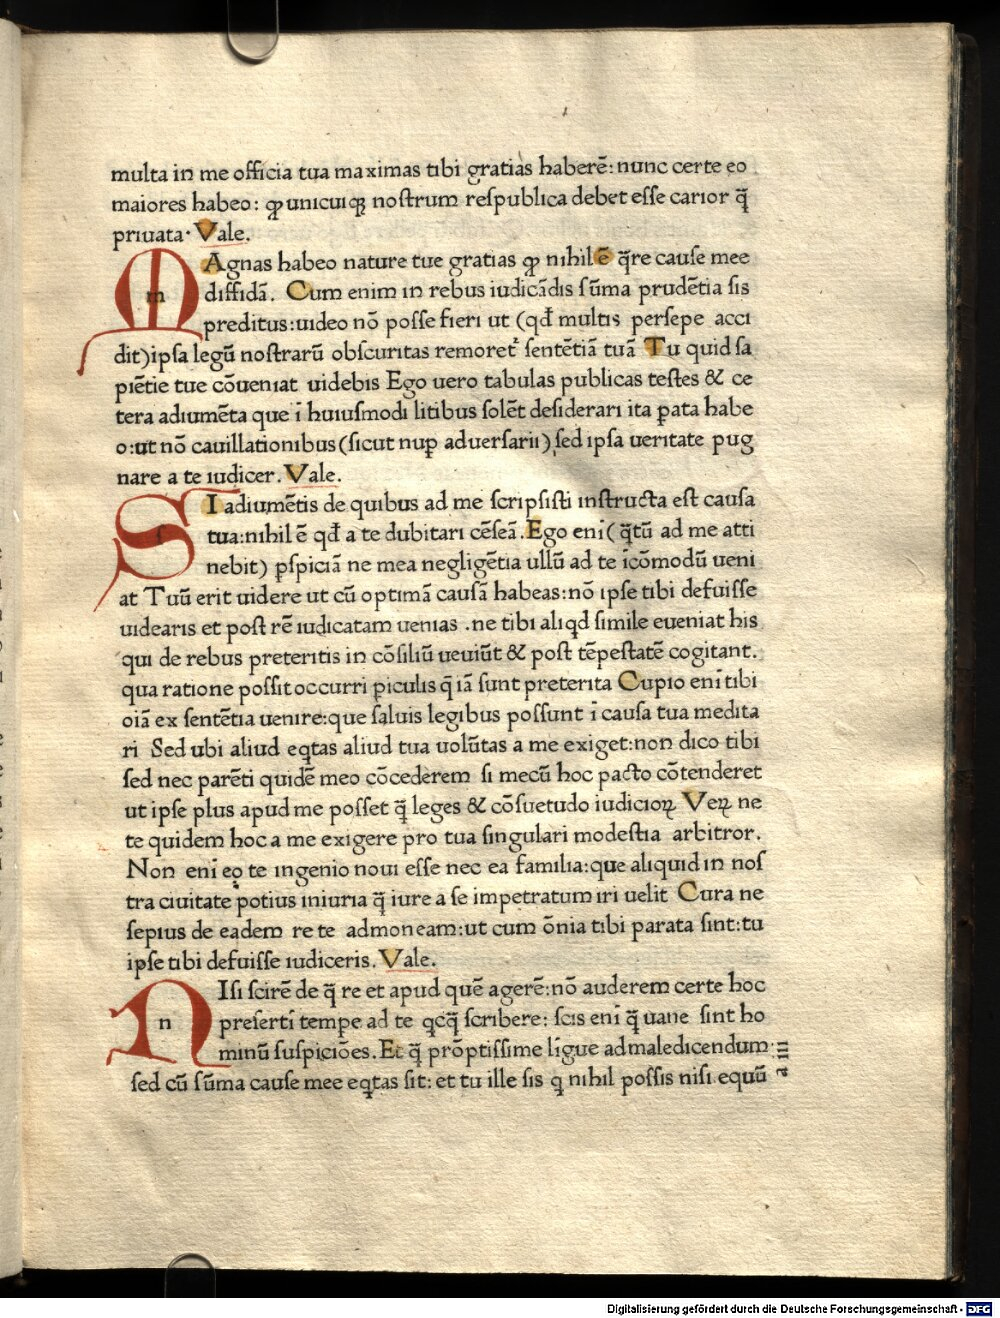 multa in me officia tua maximas tibi gratias haberē: nunc certe eo
maiores habeo: ꝙ unicuiqꝫ nostrum respublica debet esse carior q̄
priuata. Vale.
m Agnas habeo nature tue gratias ꝙ nihil ē q̄re cause mee
diffidā. Cum enim in rebus iudicādis sūma prudētia sis
preditus: uideo nō posse fieri ut (qđ multis persepe acci
dit) ipsa legū nostrarū obscuritas remoret᷑ sentētiā tuā Tu quid sa
piētie tue cōueniat uidebis Ego uero tabulas publicas testes & ce
tera adiumēta que ī huiusmodi litibus solēt desiderari ita ꝑata habe
o: ut nō cauillationibus (sicut nuꝑ aduersarii) sed ipsa ueritate pug
nare a te iudicer. Vale.
s I adiumētis de quibus ad me scripsisti instructa est causa
tua: nihil ē qđ a te dubitari cēseā. Ego enī (q̄tū ad me atti
nebit) ꝑspiciā ne mea negligētia ullū ad te īcōmodū ueni
at Tuū erit uidere ut cū optimā causā habeas: nō ipse tibi defuisse
uidearis et post rē iudicatam uenias . ne tibi aliqđ simile eueniat his
qui de rebus preteritis in cōsiliū ueuiūt & post tēpestatē cogitant.
qua ratione possit occurri ꝑiculis q̄ iā sunt preterita Cupio enī tibi
oīa ex sentētia uenire: que saluis legibus possunt ī causa tua medita
ri Sed ubi aliud eqͥtas aliud tua uolūtas a me exiget: non dico tibi
sed nec parēti quidē meo cōcederem si mecū hoc pacto cōtenderet
ut ipse plus apud me posset q̄ leges & cōsuetudo iudicioꝝ Veꝝ ne
te quidem hoc a me exigere pro tua singulari modestia arbitror.
Non enī eo te ingenio noui esse nec ea familia: que aliquid in nos
tra ciuitate potius iniuria q̄ iure a se impetratum iri uelit Cura ne
sepius de eadem re te admoneam: ut cum ōnia tibi parata sint: tu
ipse tibi defuisse iudiceris. Vale.
n Isi scirē de q̄ re et apud quē agerē: nō auderem certe hoc
presertī tempe ad te qͥcq̄ scribere: scis enī q̄ uane sint ho
minū suspiciōes. Et q̄ prōptissime līgue ad maledicendum:
sed cū sūma cause mee eqͥtas sit: et tu ille sis q nihil possis nisi equū
a iii
Digitalisierung gefördert durch die Deutsche Forschungsgemeinschaft - DFG